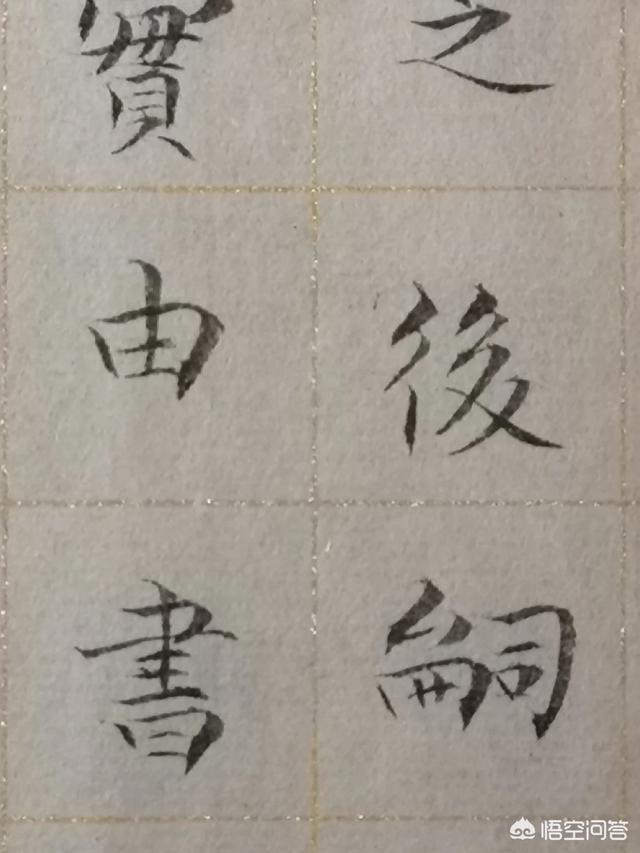 之後嗣
實由書
悟空问答